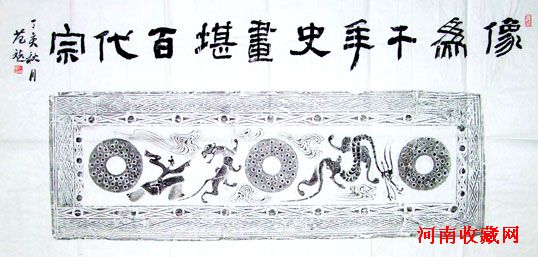 像為千年史畫堪百代宗
丁亥秋月
河南收藏网